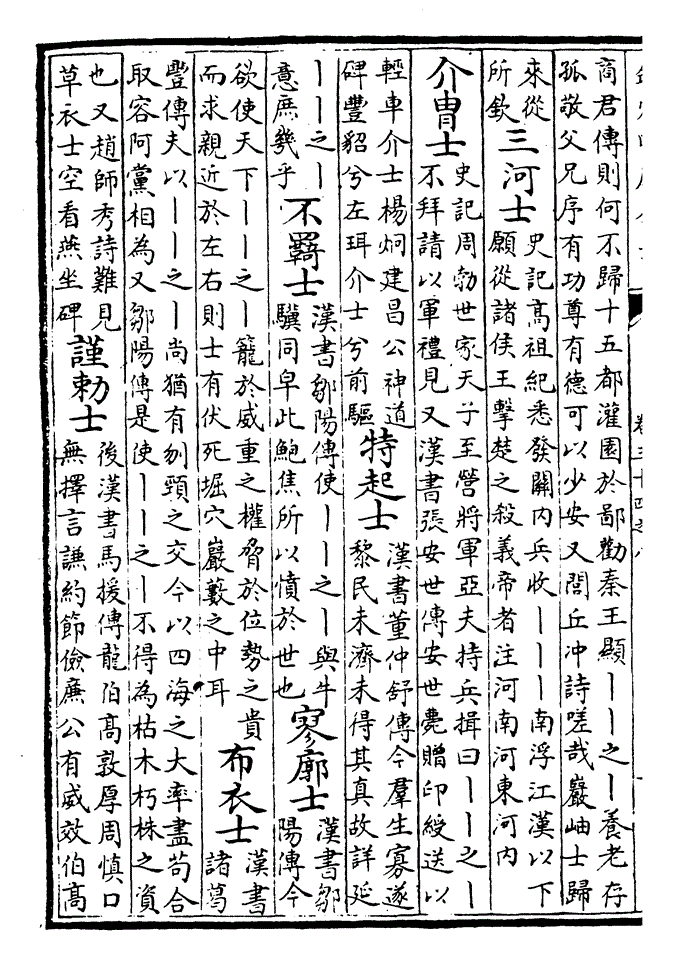 卷三十四之八
商君傳則何不歸十五都灌園於鄙勸秦王顯丨丨之丨養老存
孤敬父兄序有功尊有德可以少安又閻丘冲詩嗟哉巖岫士歸
來從
所欽
三河士
史記高祖紀悉發關內兵收丨丨丨南浮江漢以下
願從諸侯王擊楚之殺義帝者注河南河東河內
介冑士
史記周勃世家天子至營將軍亞夫持兵揖曰丨丨之丨
不拜請以軍禮見又漢書張安世傳安世薨贈印綬送以
輕車介士楊炯建昌公神道
碑豐貂兮左珥介士兮前驅
特起士
漢書董仲舒傳今羣生寡遂
黎民未濟未得其真故詳延
丨丨之丨
意庶幾乎
不羈士
漢書鄒陽傳使丨丨之丨與牛
驥同皁此鮑焦所以憤於世也
寥廓士
漢書鄒
陽傳今
欲使天下丨丨之丨籠於威重之權脅於位勢之貴
而求親近於左右則士有伏死堀穴巖藪之中耳
布衣士
漢書
諸葛
豐傳夫以丨丨之丨尚猶有刎頸之交今以四海之大率盡苟合
取容阿黨相為又鄒陽傳是使丨丨之丨不得為枯木朽株之資
也又趙師秀詩難見
草衣士空看燕坐碑
謹勅士
後漢書馬援傳龍伯高敦厚周慎口
無擇言謙約節儉廉公有威效伯高